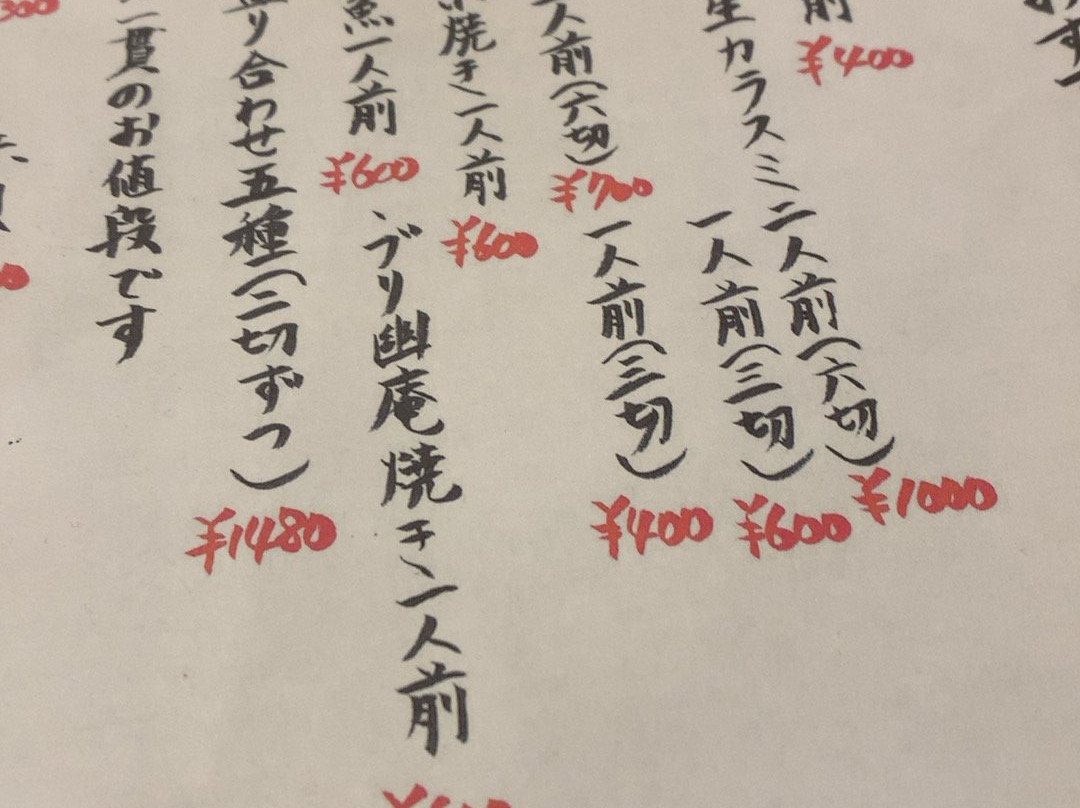 前
¥400
生カラスミ二人前(六切)
¥1000
一人前(三切)
¥600
二人前(六切)
¥700
一人前(三切)
¥400
焼き一人前
¥600
魚一人前
¥600
ブリ幽庵焼き一人前
盛り合わせ五種(二切ずつ)
¥1480
二貫のお値段です
¥300